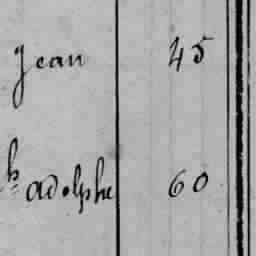 Jean 45
h adolphe 60